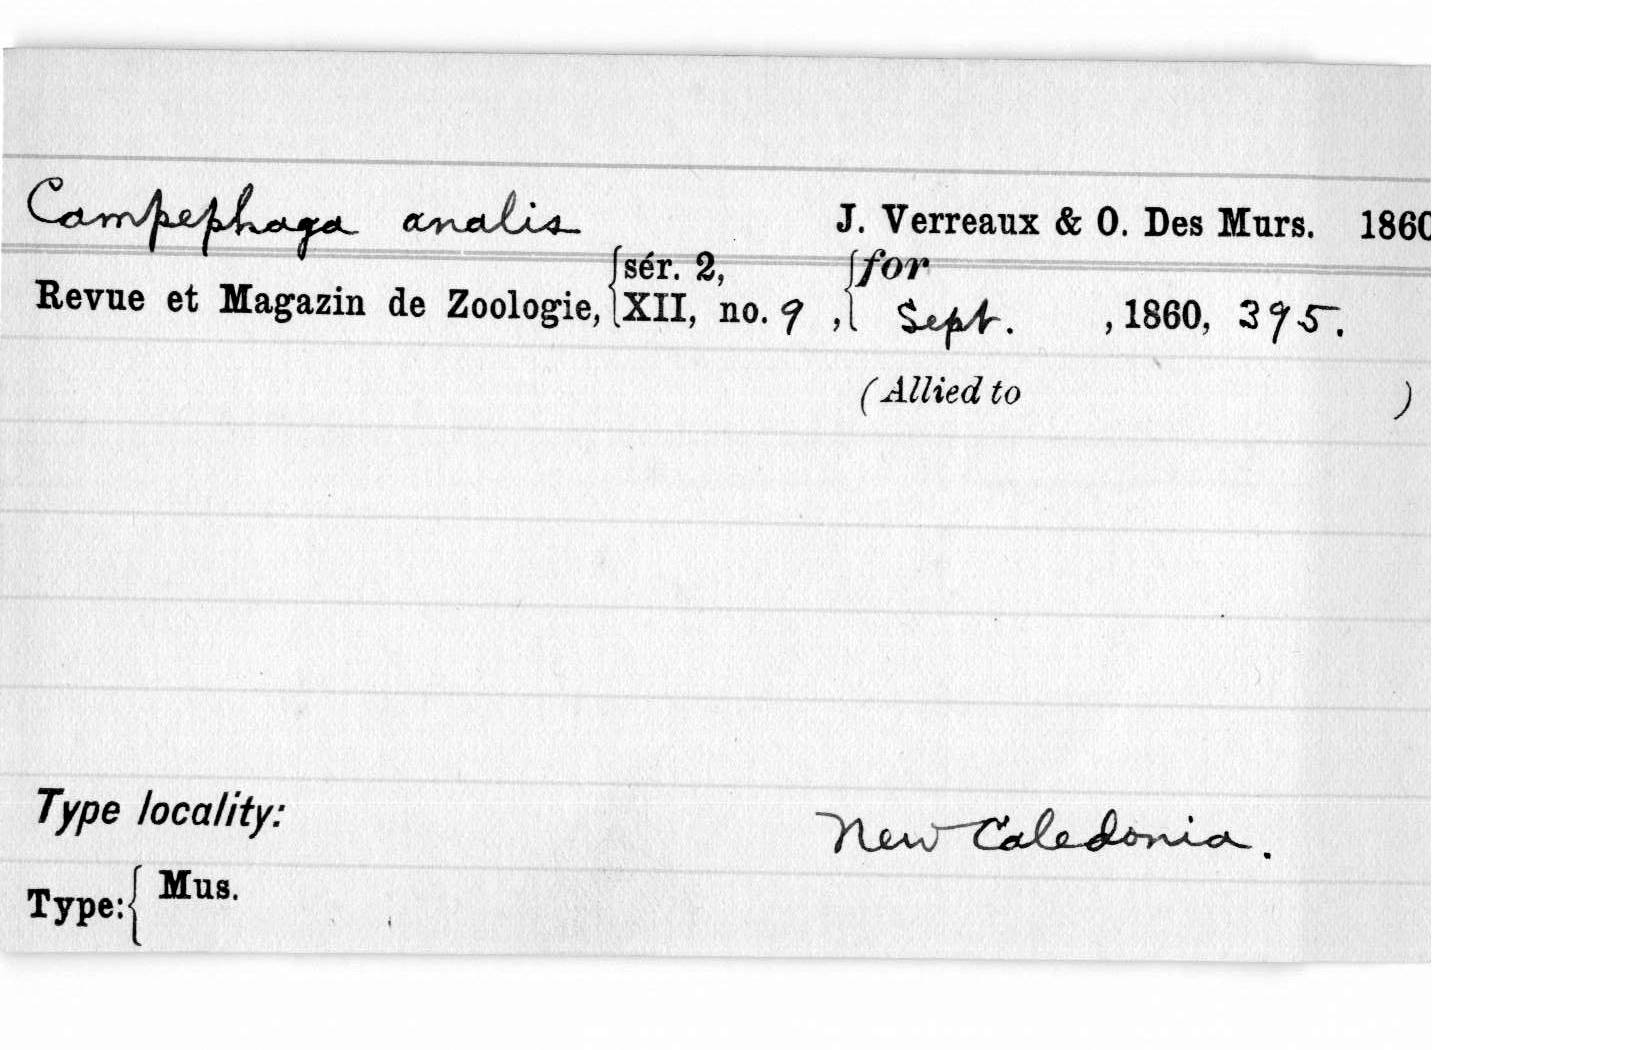 Campephaga analis J. Verreaux & O. Des Murs. 1860
Revue et Magazin de Zoologie, {sér. 2, XII, no. 9 , {for Sept. , 1860, 395.
(Allied to )
Type locality: New Caledonia.
Type: { Mus.